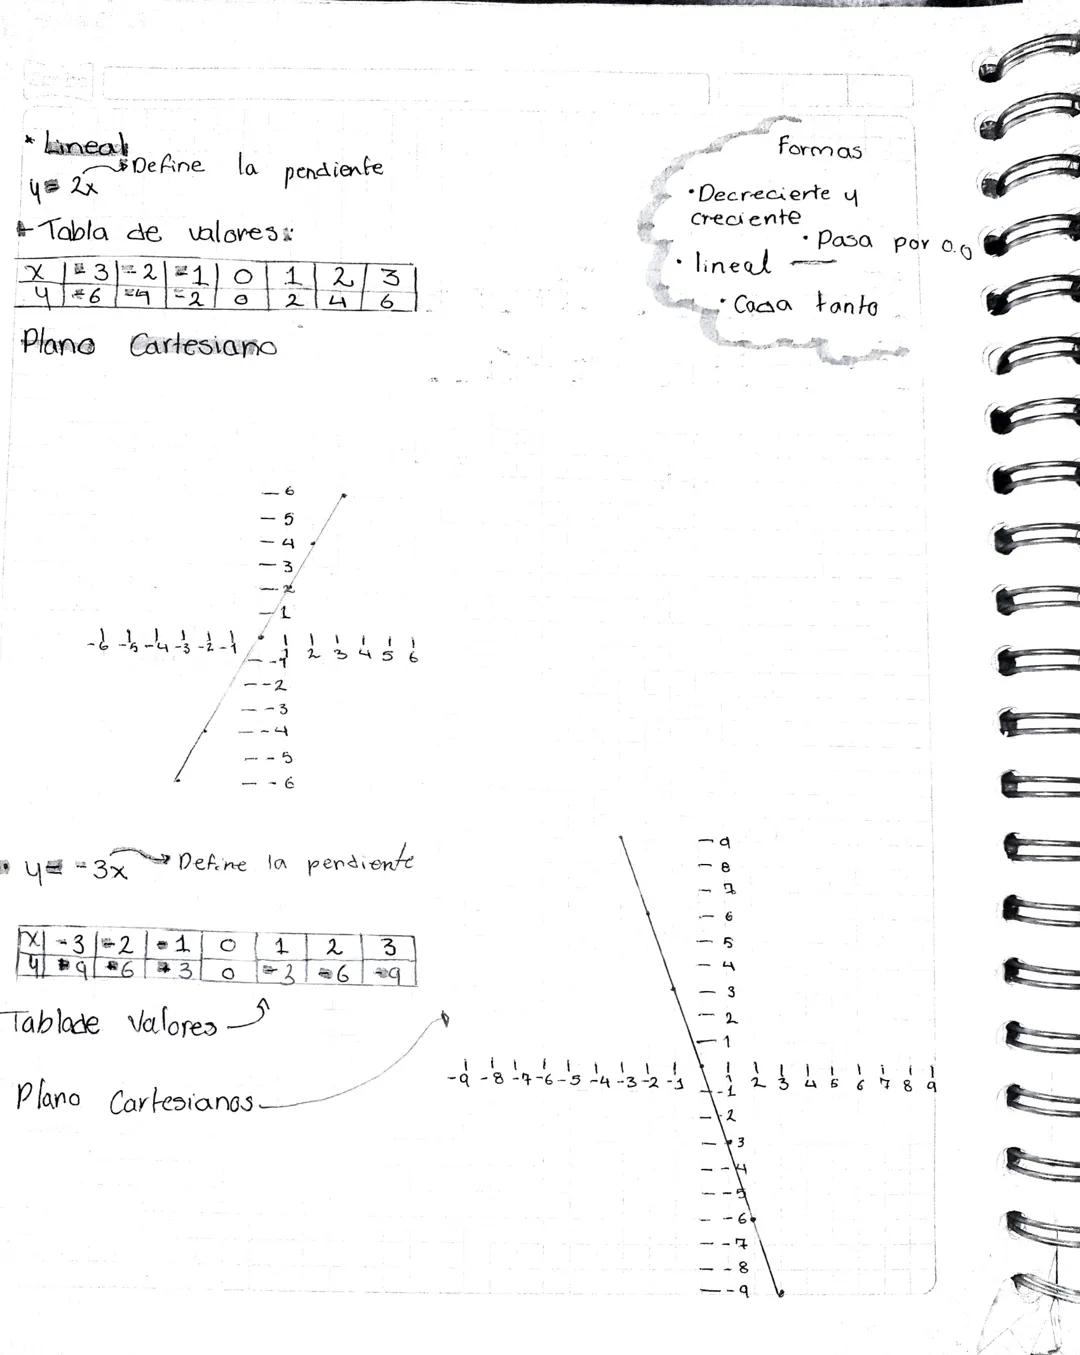 * Lineal
Define la pendiente
y= 2x
Tabla de valores:
x | -3 | -2 | -1 | 0 | 1 | 2 | 3
y | -6 | -4 | -2 | 0 | 2 | 4 | 6
Plano Cartesiano
Formas
• Decreciente y
creciente
• Pasa por 0.0
• lineal —
• Cada tanto
6
5
4
3
2
1
-6 -5 -4 -3 -2 -1 1 2 3 4 5 6
-1
-2
-3
-4
-5
-6
• y= -3x → Define la pendiente
x | -3 | -2 | -1 | 0 | 1 | 2 | 3
y | 9 | 6 | 3 | 0 | -3 | -6 | -9
Tabla de Valores
Plano Cartesianos
9
8
7
6
5
4
3
2
1
-9 -8 -7 -6 -5 -4 -3 -2 -1 1 2 3 4 5 6 7 8 9
-1
-2
-3
-4
-5
-6
-7
-8
-9